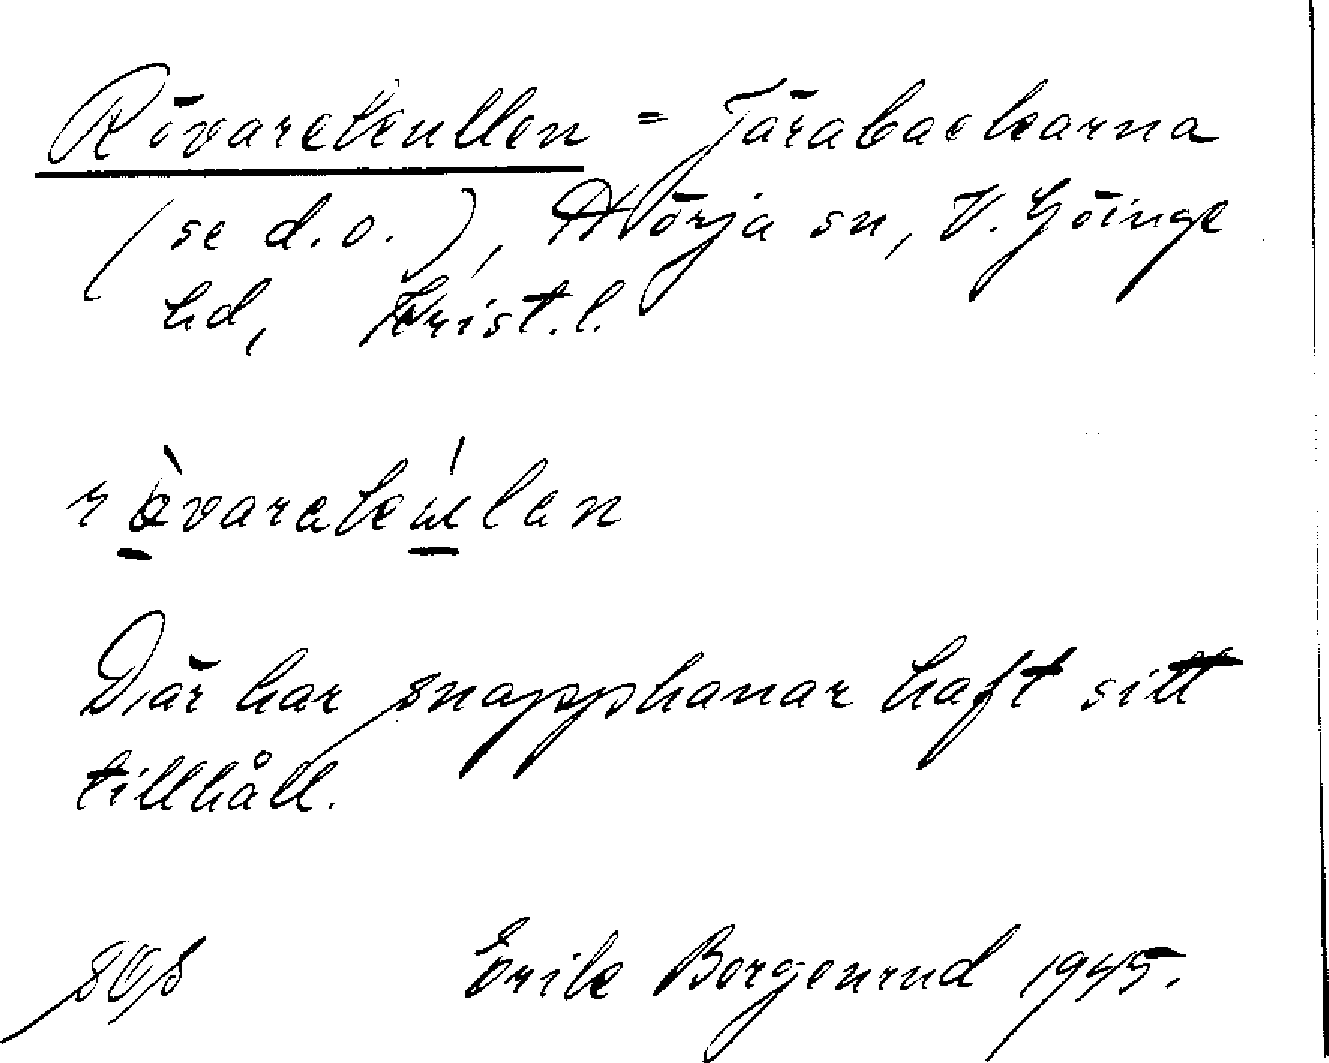 Rövarekullen = Tärabackarna
(se d.o.), Nörja sn, V. Göinge
hd, Krist.l.
rövarekulen
Där har snapphanar haft sitt
tillhåll.
Erik Borgenrud 1945.